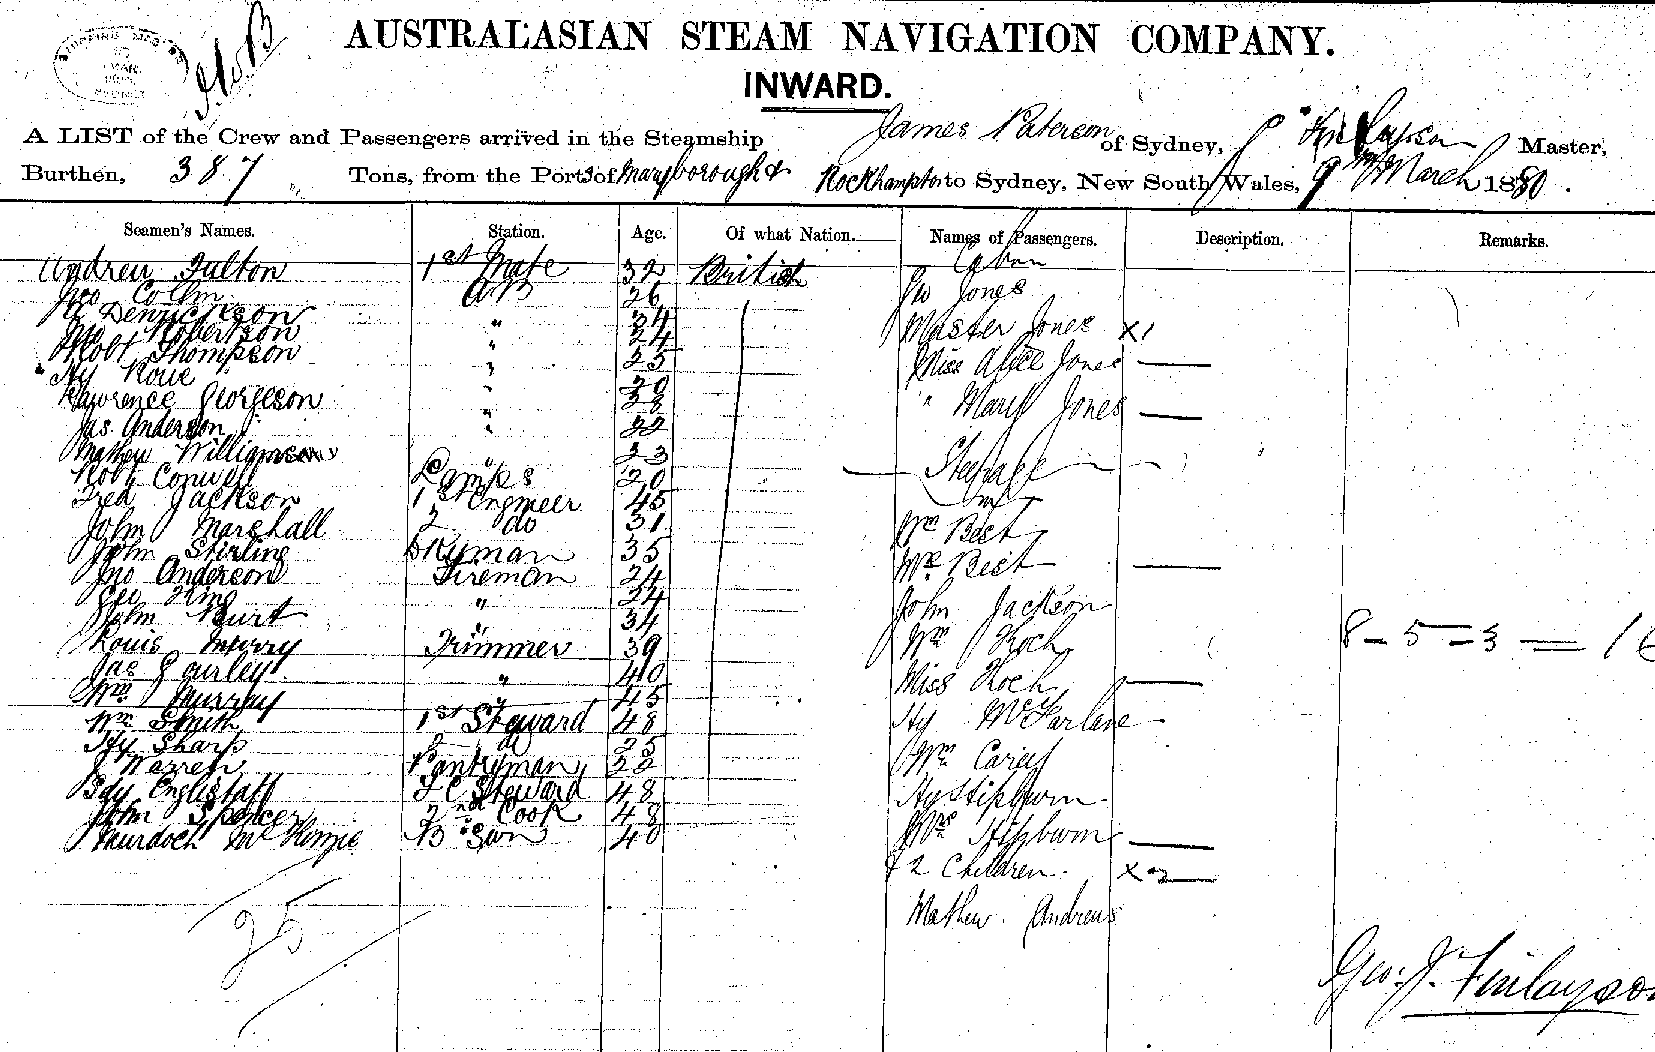 AUSTRALASIAN STEAM NAVIGATION COMPANY.
INWARD.
A LIST of the Crew and Passengers arrived in the Steamship James Paterson of Sydney, Finlayson Master,
Burthen, 387 Tons, from the Port of Maryborough & Rockhampton to Sydney, New South Wales, 9th March 1880.
Seamen's Names. Station. Age. Of what Nation. Names of Passengers. Description. Remarks.
Cabin
Andrew Fulton 1st Mate 32 British
Jno Colin AB 26 Jones
Derrickson " 24 Master Jones x1
Jno Robertson " 24
Robt Thompson " 25 Miss Alice Jones
Hy Roue " 20
Lawrence Georgeson " 28 " Mary Jones
Jas. Anderson " 22
Mathew Williamson " 23
Steerage
Robt Conwell Lamps 20
Fred Jackson 1st Engineer 45
John Marshall 2 do 31 Wm Best
John Stirling Dkyman 35 Mrs Best
Jno Anderson Fireman 24
Geo King " 24 John Jackson
John Burt " 34
Louis Murry Trimmer 39 Wm Koch
Jas Gourley " 40 Miss Koch
Wm Murray " 45
Wm Smith 1st Steward 48 Hy McFarlane
Hy Sharp 2 do 25
Warren Pantryman 22 Wm Carey
Englistaff F C Steward 48 Hy Hipburn
John Spencer 2nd Cook 48
Murdoch McKenzie Bo Sun 40 Mrs Hipburn
& 2 Children. x 2
Mathew Andrews
8 - 5 - 3 =
25
Geo. J. Finlayson